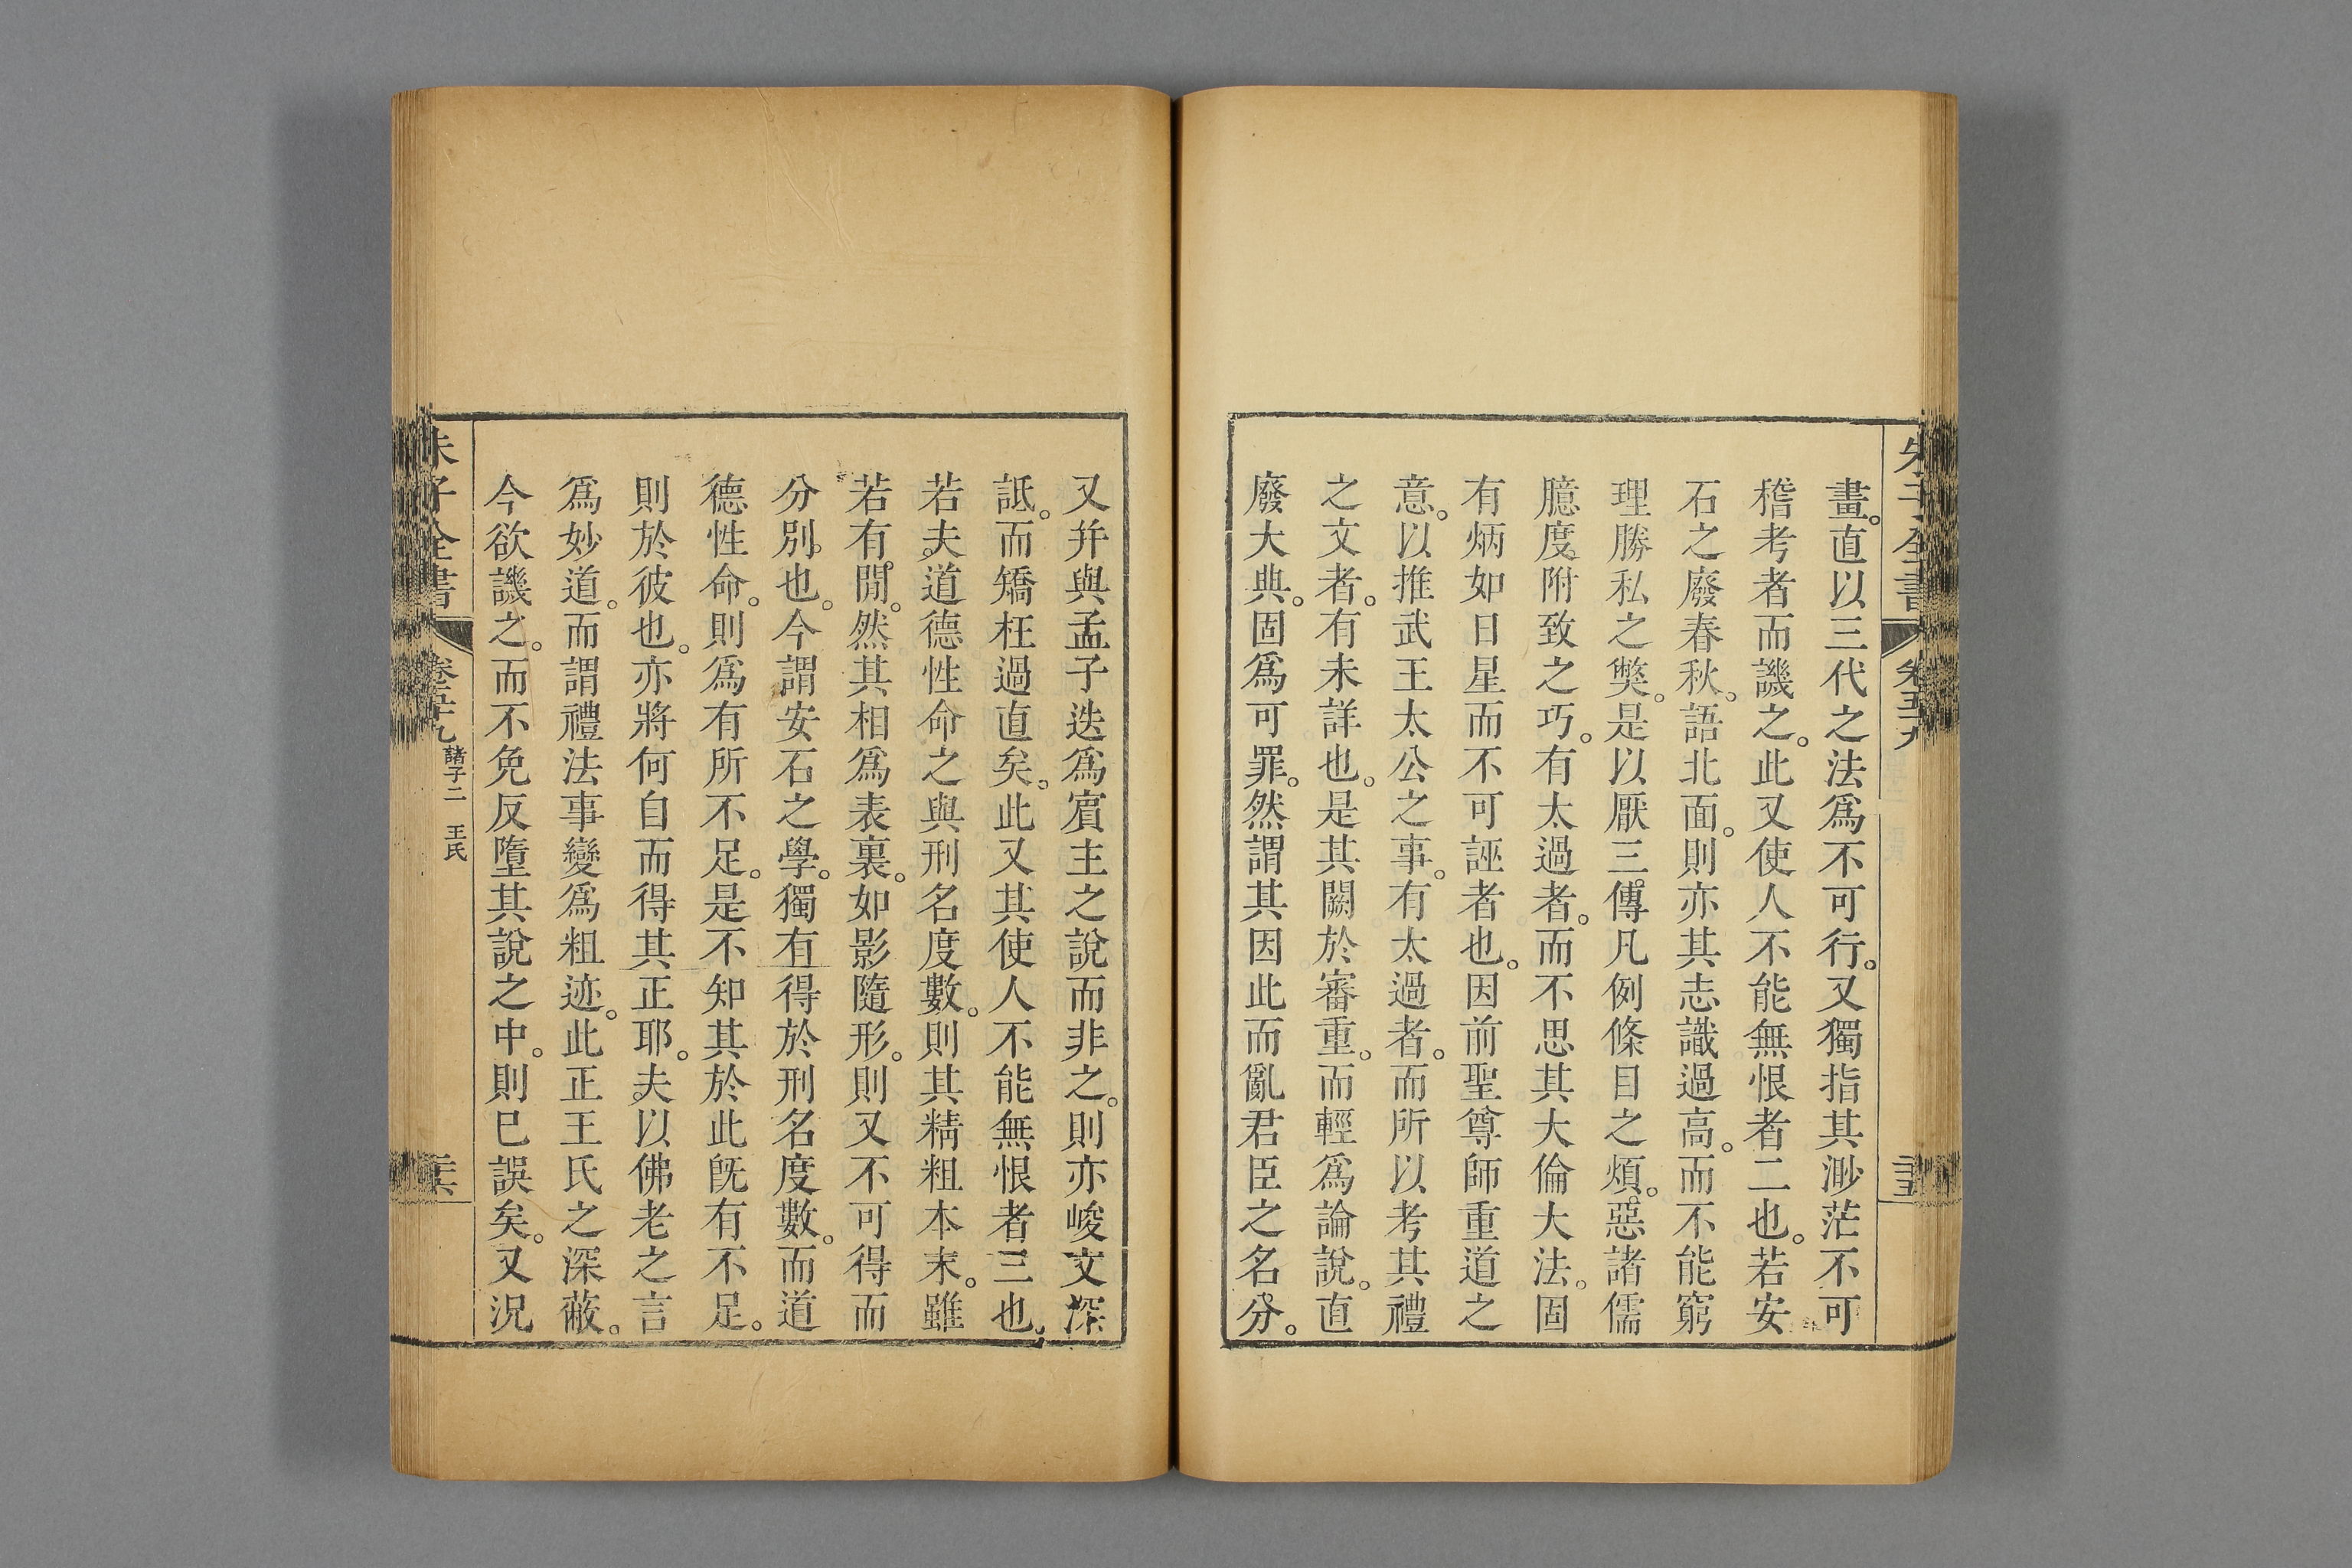 朱子全書 卷五十九
畫。直以三代之法爲不可行。又獨指其渺茫不可
稽考者而譏之。此又使人不能無恨者二也。若安
石之廢春秋。語北面。則亦其志識過高。而不能窮
理勝私之獘。是以厭三傳凡例條目之煩。惡諸儒
臆度附致之巧。有太過者。而不思其大倫大法。固
有炳如日星而不可誣者也。因前聖尊師重道之
意。以推武王太公之事。有太過者。而所以考其禮
之文者。有未詳也。是其闕於審重。而輕爲論說。直
廢大典。固爲可罪。然謂其因此而亂君臣之名分。
又幷與孟子迭爲賓主之說而非之。則亦峻文深
詆。而矯枉過直矣。此又其使人不能無恨者三也。
若夫道德性命之與刑名度數。則其精粗本末。雖
若有閒。然其相爲表裏。如影隨形。則又不可得而
分別也。今謂安石之學。獨有得於刑名度數。而道
德性命。則爲有所不足。是不知其於此旣有不足。
則於彼也。亦將何自而得其正耶。夫以佛老之言
爲妙道。而謂禮法事變爲粗迹。此正王氏之深蔽。
今欲譏之。而不免反墮其說之中。則已誤矣。又况
朱子全書 卷五十九 諸子二 王氏